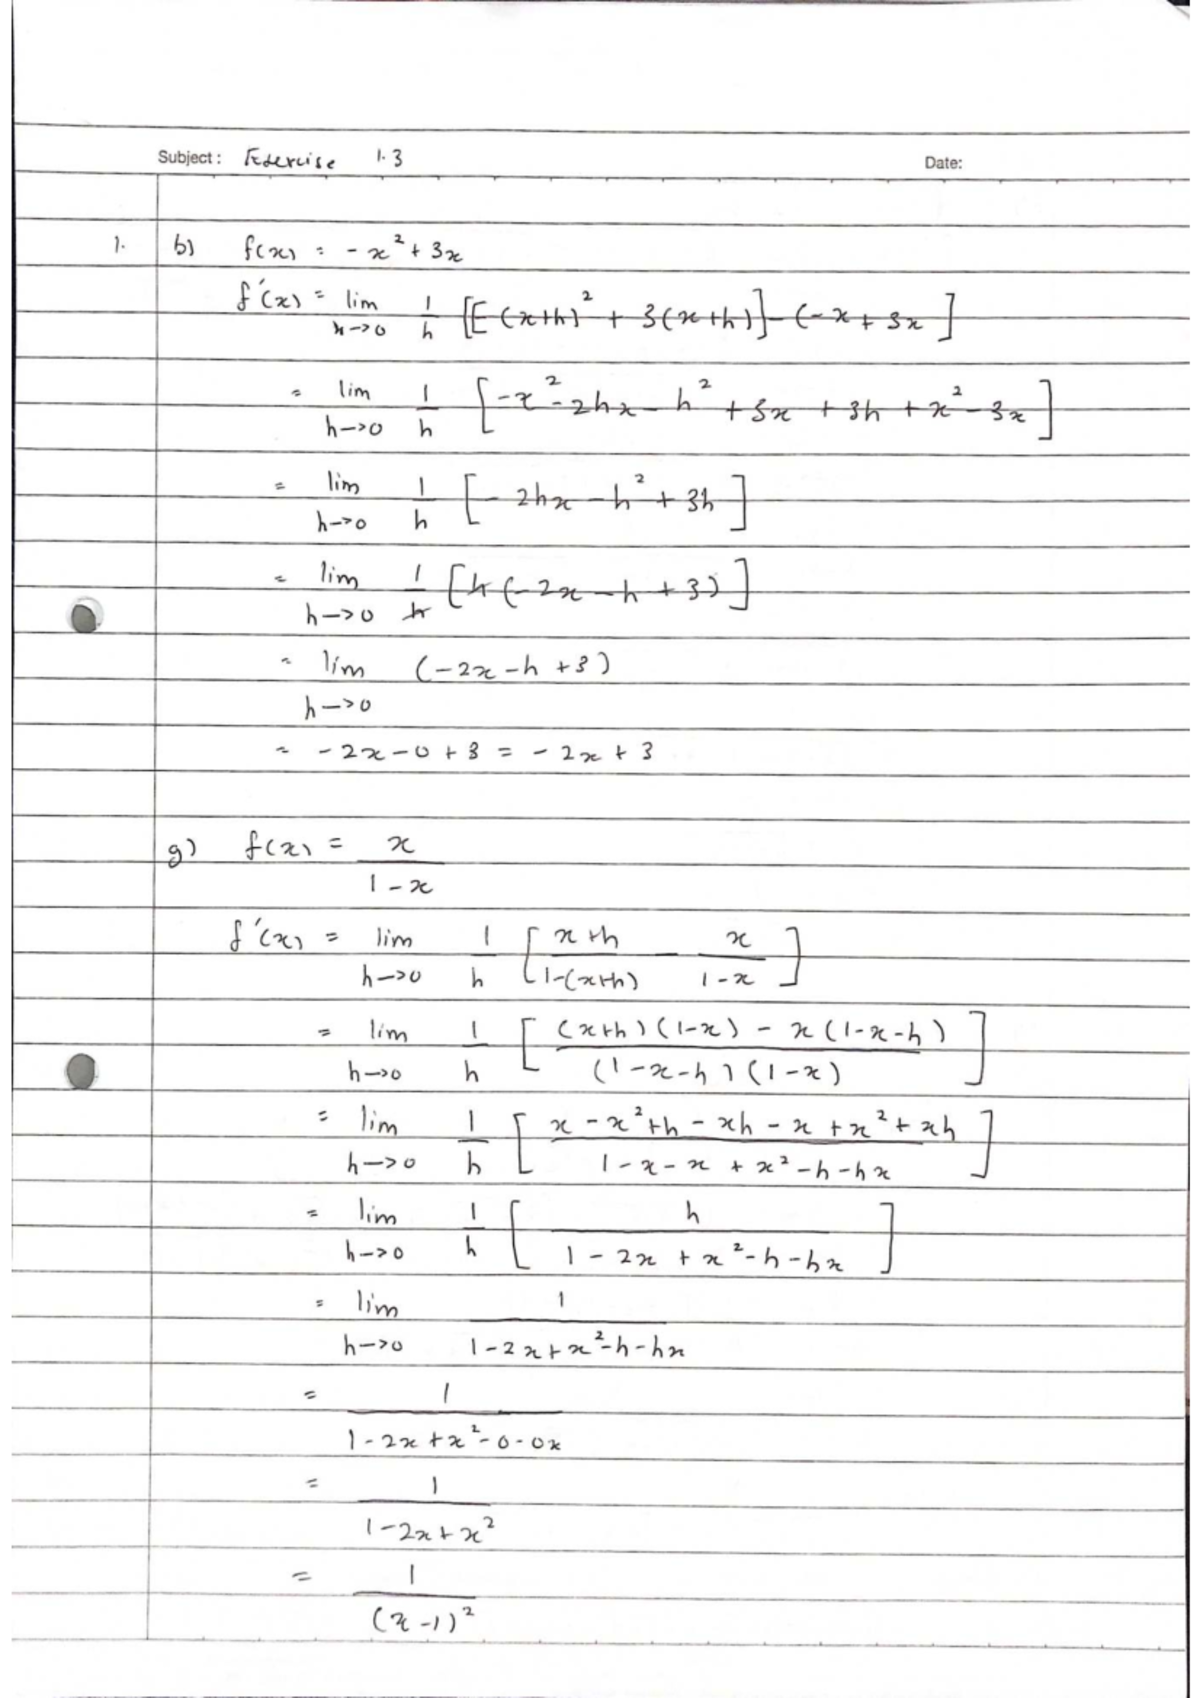 Subject : Exercise 1.3 Date:
1. b) f(x) = -x² + 3x
f'(x) = lim h->0 1/h [[-(x+h)² + 3(x+h)] - (-x + 3x]
= lim h->0 1/h [-x² - 2hx - h² + 3x + 3h + x² - 3x]
= lim h->0 1/h [- 2hx - h² + 3h]
= lim h->0 1/h [h(-2x - h + 3)]
= lim h->0 (-2x - h + 3)
= -2x - 0 + 3 = -2x + 3
g) f(x) = x/(1-x)
f'(x) = lim h->0 1/h [(x+h)/(1-(x+h)) - x/(1-x)]
= lim h->0 1/h [((x+h)(1-x) - x(1-x-h))/((1-x-h)(1-x))]
= lim h->0 1/h [(x - x² + h - xh - x + x² + xh)/(1 - x - x + x² - h - hx)]
= lim h->0 1/h [h/(1 - 2x + x² - h - hx)]
= lim h->0 1/(1 - 2x + x² - h - hx)
= 1/(1 - 2x + x² - 0 - 0x)
= 1/(1 - 2x + x²)
= 1/(x-1)²